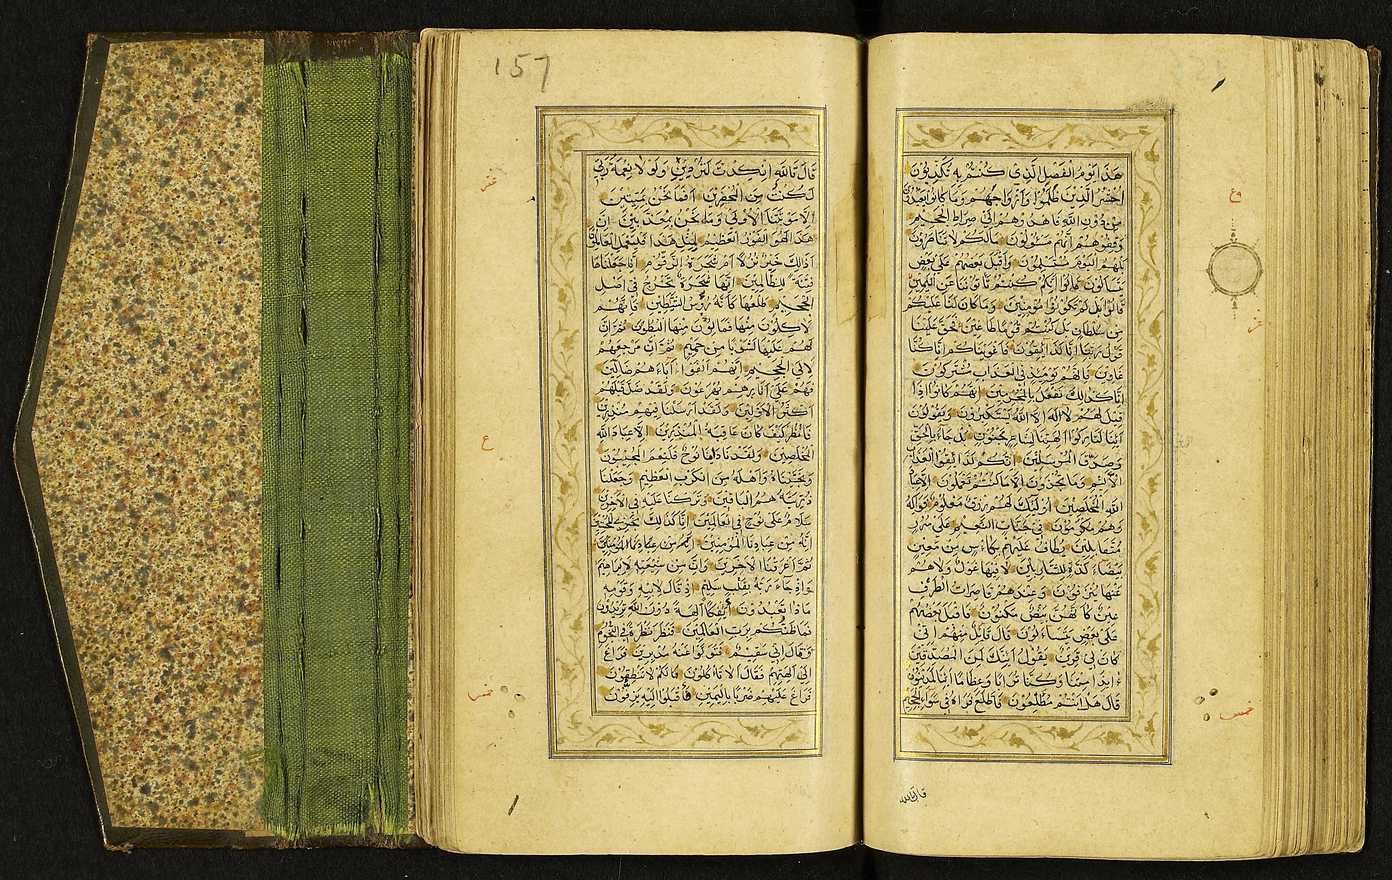 هَذَا يَوْمُ الْفَصْلِ الَّذِي كُنْتُمْ بِهِ تُكَذِّبُونَ
احْشُرُوا الَّذِينَ ظَلَمُوا وَأَزْوَاجَهُمْ وَمَا كَانُوا يَعْبُدُونَ
مِنْ دُونِ اللَّهِ فَاهْدُوهُمْ إِلَى صِرَاطِ الْجَحِيمِ
وَقِفُوهُمْ إِنَّهُمْ مَسْئُولُونَ مَا لَكُمْ لَا تَنَاصَرُونَ
بَلْ هُمُ الْيَوْمَ مُسْتَسْلِمُونَ وَأَقْبَلَ بَعْضُهُمْ عَلَى بَعْضٍ
يَتَسَاءَلُونَ قَالُوا إِنَّكُمْ كُنْتُمْ تَأْتُونَنَا عَنِ الْيَمِينِ
قَالُوا بَلْ لَمْ تَكُونُوا مُؤْمِنِينَ وَمَا كَانَ لَنَا عَلَيْكُمْ
مِنْ سُلْطَانٍ بَلْ كُنْتُمْ قَوْمًا طَاغِينَ فَحَقَّ عَلَيْنَا
قَوْلُ رَبِّنَا إِنَّا لَذَائِقُونَ فَأَغْوَيْنَاكُمْ إِنَّا كُنَّا
غَاوِينَ فَإِنَّهُمْ يَوْمَئِذٍ فِي الْعَذَابِ مُشْتَرِكُونَ
إِنَّا كَذَلِكَ نَفْعَلُ بِالْمُجْرِمِينَ إِنَّهُمْ كَانُوا إِذَا
قِيلَ لَهُمْ لَا إِلَهَ إِلَّا اللَّهُ يَسْتَكْبِرُونَ وَيَقُولُونَ
أَئِنَّا لَتَارِكُوا آلِهَتِنَا لِشَاعِرٍ مَجْنُونٍ بَلْ جَاءَ بِالْحَقِّ
وَصَدَّقَ الْمُرْسَلِينَ إِنَّكُمْ لَذَائِقُوا الْعَذَابِ
الْأَلِيمِ وَمَا تُجْزَوْنَ إِلَّا مَا كُنْتُمْ تَعْمَلُونَ إِلَّا عِبَادَ
اللَّهِ الْمُخْلَصِينَ أُولَئِكَ لَهُمْ رِزْقٌ مَعْلُومٌ فَوَاكِهُ
وَهُمْ مُكْرَمُونَ فِي جَنَّاتِ النَّعِيمِ عَلَى سُرُرٍ
مُتَقَابِلِينَ يُطَافُ عَلَيْهِمْ بِكَأْسٍ مِنْ مَعِينٍ
بَيْضَاءَ لَذَّةٍ لِلشَّارِبِينَ لَا فِيهَا غَوْلٌ وَلَا هُمْ
عَنْهَا يُنْزَفُونَ وَعِنْدَهُمْ قَاصِرَاتُ الطَّرْفِ
عِينٌ كَأَنَّهُنَّ بَيْضٌ مَكْنُونٌ فَأَقْبَلَ بَعْضُهُمْ
عَلَى بَعْضٍ يَتَسَاءَلُونَ قَالَ قَائِلٌ مِنْهُمْ إِنِّي
كَانَ لِي قَرِينٌ يَقُولُ أَئِنَّكَ لَمِنَ الْمُصَدِّقِينَ
ءَإِذَا مِتْنَا وَكُنَّا تُرَابًا وَعِظَامًا أَئِنَّا لَمَدِينُونَ
قَالَ هَلْ أَنْتُمْ مُطَّلِعُونَ فَاطَّلَعَ فَرَآهُ فِي سَوَاءِ الْجَحِيمِ
قال تالله
خمس
157
قَالَ تَاللَّهِ إِنْ كِدْتَ لَتُرْدِينِ وَلَوْلَا نِعْمَةُ رَبِّي
لَكُنْتُ مِنَ الْمُحْضَرِينَ أَفَمَا نَحْنُ بِمَيِّتِينَ
إِلَّا مَوْتَتَنَا الْأُولَى وَمَا نَحْنُ بِمُعَذَّبِينَ إِنَّ
هَذَا لَهُوَ الْفَوْزُ الْعَظِيمُ لِمِثْلِ هَذَا فَلْيَعْمَلِ الْعَامِلُونَ
أَذَلِكَ خَيْرٌ نُزُلًا أَمْ شَجَرَةُ الزَّقُّومِ إِنَّا جَعَلْنَاهَا
فِتْنَةً لِلظَّالِمِينَ إِنَّهَا شَجَرَةٌ تَخْرُجُ فِي أَصْلِ
الْجَحِيمِ طَلْعُهَا كَأَنَّهُ رُءُوسُ الشَّيَاطِينِ فَإِنَّهُمْ
لَآكِلُونَ مِنْهَا فَمَالِئُونَ مِنْهَا الْبُطُونَ ثُمَّ إِنَّ
لَهُمْ عَلَيْهَا لَشَوْبًا مِنْ حَمِيمٍ ثُمَّ إِنَّ مَرْجِعَهُمْ
لَإِلَى الْجَحِيمِ إِنَّهُمْ أَلْفَوْا آبَاءَهُمْ ضَالِّينَ
فَهُمْ عَلَى آثَارِهِمْ يُهْرَعُونَ وَلَقَدْ ضَلَّ قَبْلَهُمْ
أَكْثَرُ الْأَوَّلِينَ وَلَقَدْ أَرْسَلْنَا فِيهِمْ مُنْذِرِينَ
فَانْظُرْ كَيْفَ كَانَ عَاقِبَةُ الْمُنْذَرِينَ إِلَّا عِبَادَ اللَّهِ
الْمُخْلَصِينَ وَلَقَدْ نَادَانَا نُوحٌ فَلَنِعْمَ الْمُجِيبُونَ
وَنَجَّيْنَاهُ وَأَهْلَهُ مِنَ الْكَرْبِ الْعَظِيمِ وَجَعَلْنَا
ذُرِّيَّتَهُ هُمُ الْبَاقِينَ وَتَرَكْنَا عَلَيْهِ فِي الْآخِرِينَ
سَلَامٌ عَلَى نُوحٍ فِي الْعَالَمِينَ إِنَّا كَذَلِكَ نَجْزِي الْمُحْسِنِينَ
إِنَّهُ مِنْ عِبَادِنَا الْمُؤْمِنِينَ
ثُمَّ أَغْرَقْنَا الْآخَرِينَ وَإِنَّ مِنْ شِيعَتِهِ لَإِبْرَاهِيمَ
إِذْ جَاءَ رَبَّهُ بِقَلْبٍ سَلِيمٍ إِذْ قَالَ لِأَبِيهِ وَقَوْمِهِ
مَاذَا تَعْبُدُونَ أَئِفْكًا آلِهَةً دُونَ اللَّهِ تُرِيدُونَ
فَمَا ظَنُّكُمْ بِرَبِّ الْعَالَمِينَ فَنَظَرَ نَظْرَةً فِي النُّجُومِ
فَقَالَ إِنِّي سَقِيمٌ فَتَوَلَّوْا عَنْهُ مُدْبِرِينَ فَرَاغَ
إِلَى آلِهَتِهِمْ فَقَالَ أَلَا تَأْكُلُونَ مَا لَكُمْ لَا تَنْطِقُونَ
فَرَاغَ عَلَيْهِمْ ضَرْبًا بِالْيَمِينِ فَأَقْبَلُوا إِلَيْهِ يَزِفُّونَ
ع
خمس